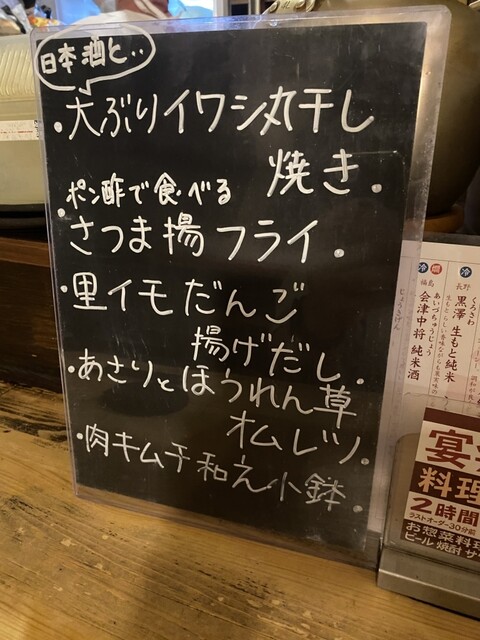 日本酒と‥
・大ぶりイワシ丸干し
焼き。
ポン酢で食べる
・さつま揚フライ。
・里イモだんご
揚げだし。
・あさりとほうれん草
オムレツ。
・肉キムチ和え小鉢。
じょうきげん
冷 燗
福島
あいづちゅうじょう
会津中将 純米酒
冷
長野
くろさわ
黒澤 生もと純米
料理
2時間
ラストオーダー30分前
お惣菜料理
ビール 焼酎 サ